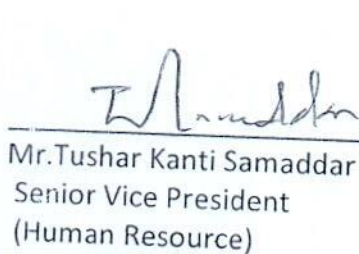 Mr.Tushar Kanti Samaddar
Senior Vice President
(Human Resource)